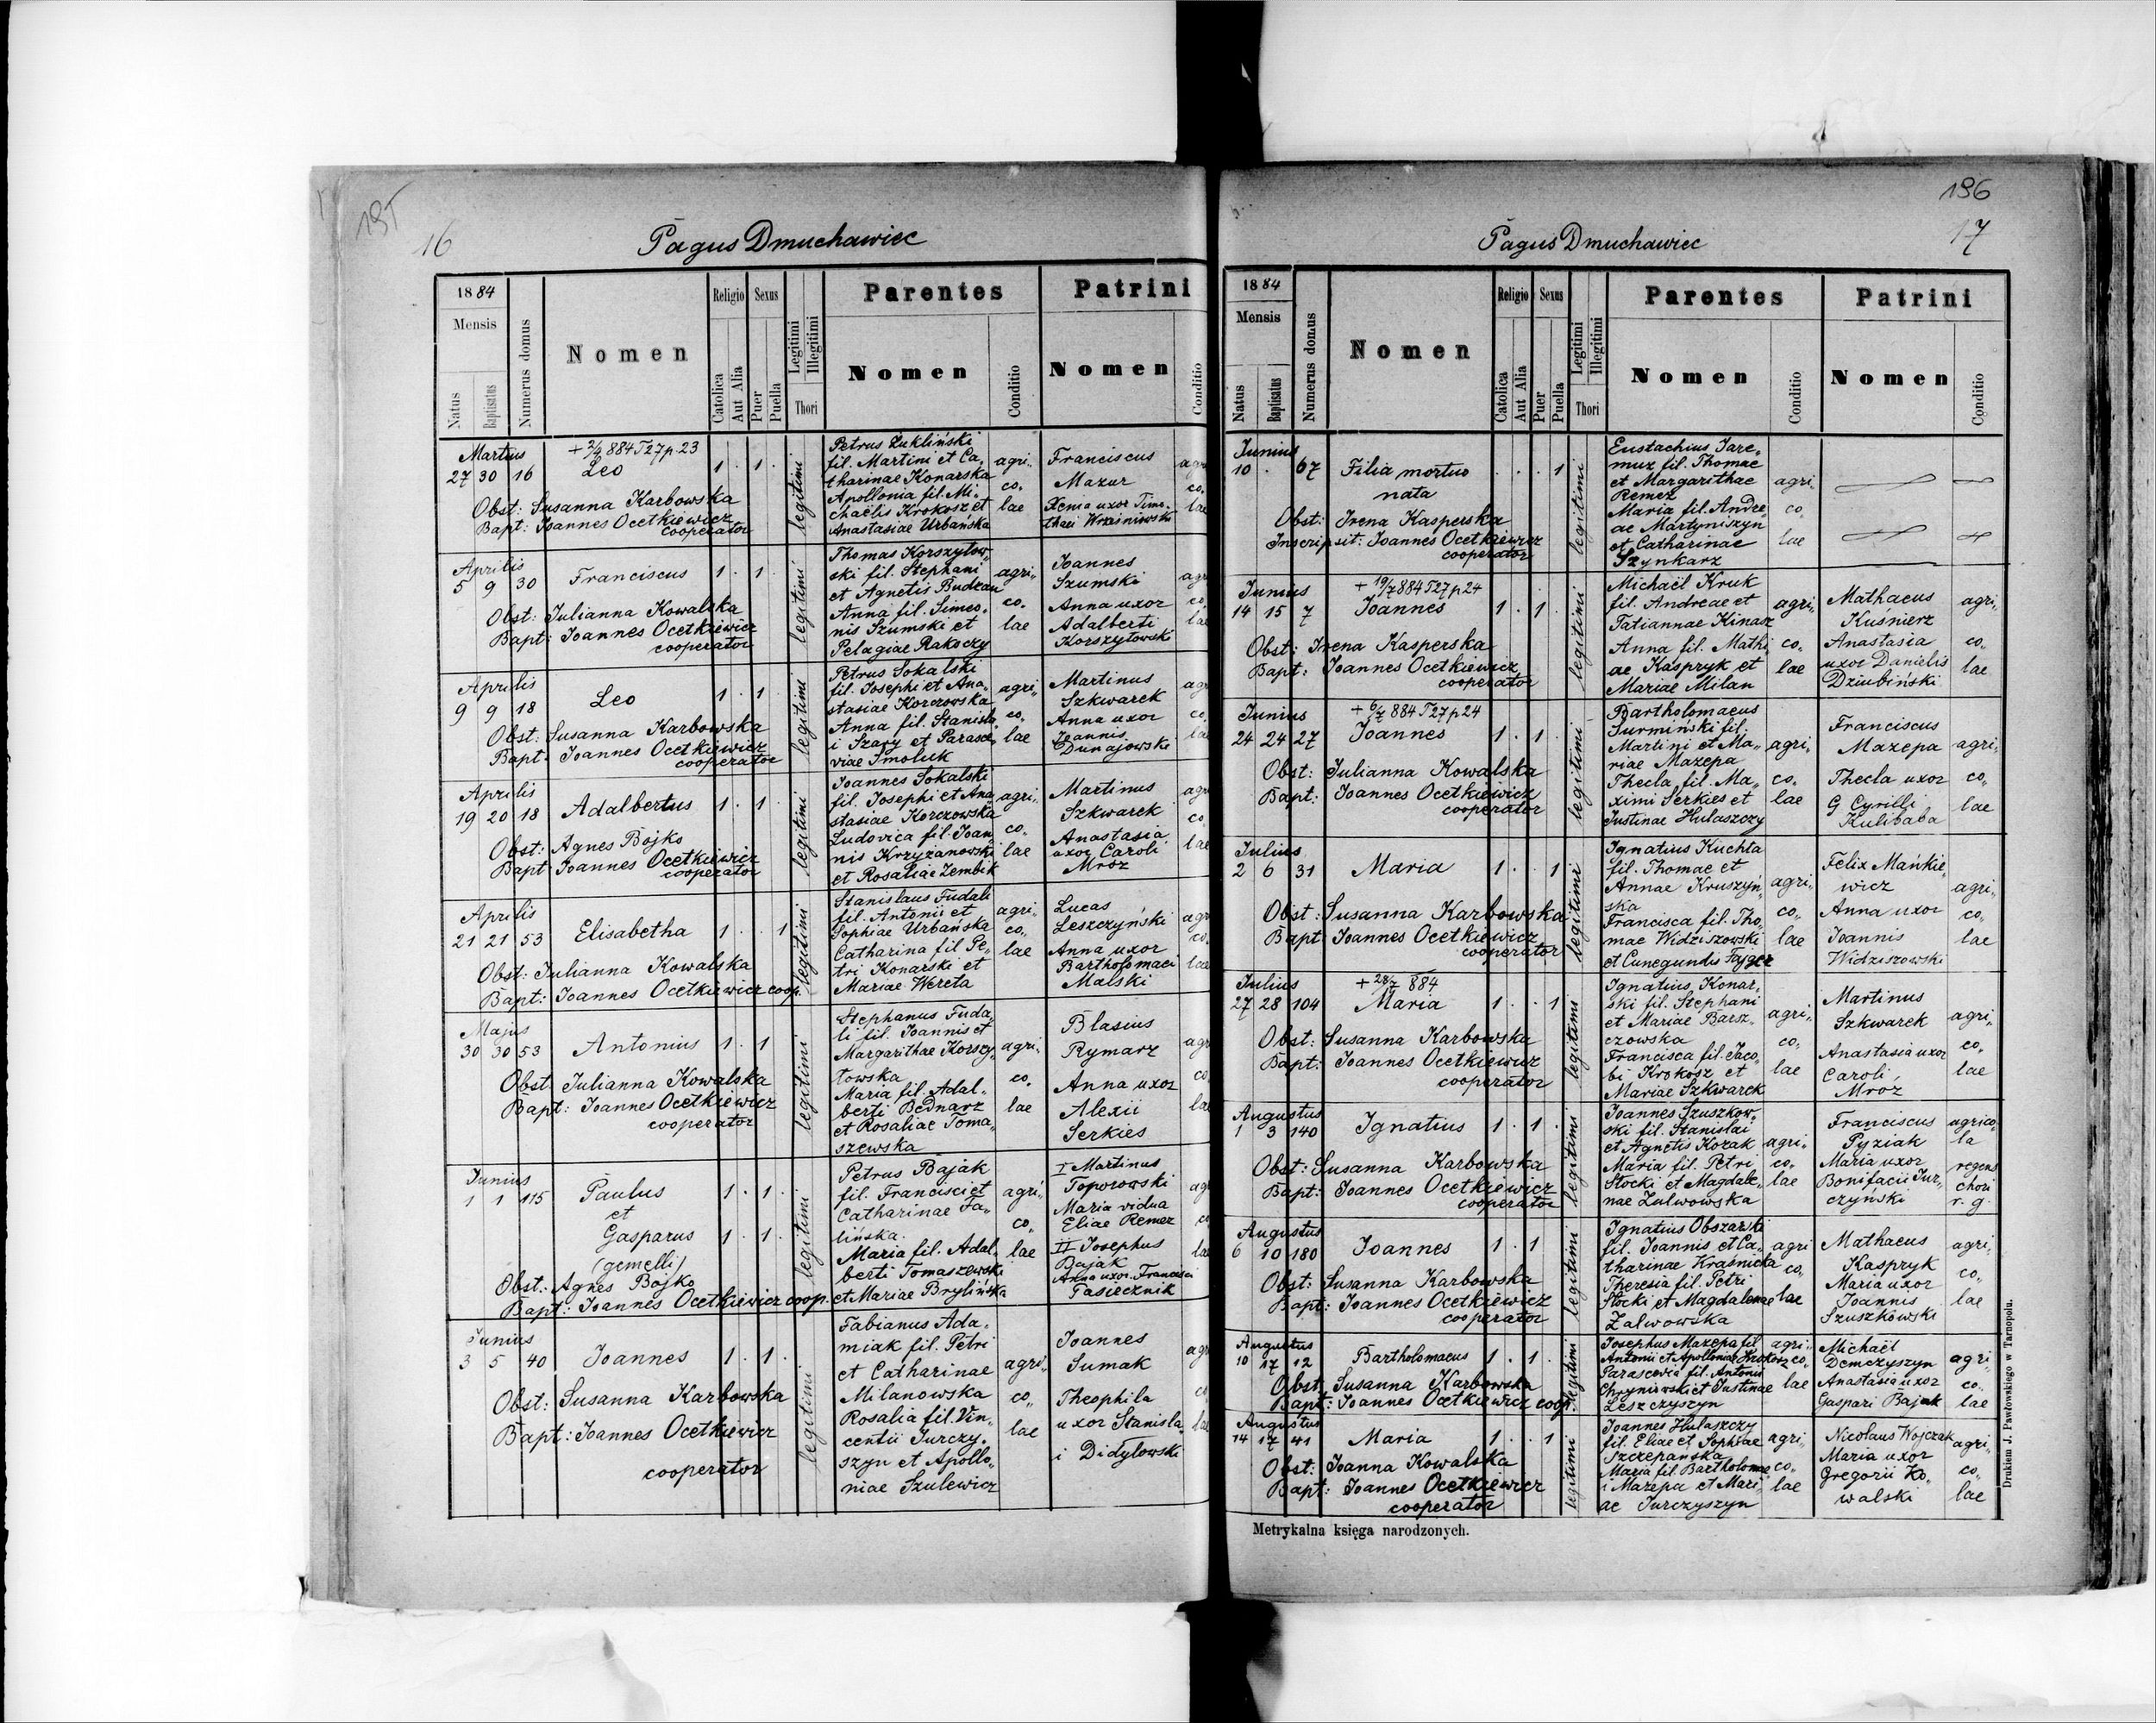 195
16
Pagus Dmuchawiec
1884
Mensis
Natus
Baptisatus
Numerus domus
Nomen
Religio
Catolica
Aut Alia
Sexus
Puer
Puella
Legitimi
Illegitimi
Thori
Parentes
Nomen
Conditio
Patrini
Nomen
Conditio
Martius
27 30 16
+ 2/4 884 T27 p. 23
Leo
1 . 1 .
legitimi
Obst: Susanna Karbowska
Bapt: Joannes Ocetkiewicz
cooperator
Petrus Zukliński
fil. Martini et Ca,,
tharinae Konarska
Apollonia fil. Mi,,
chaëlis Krokosz et
Anastasiae Urbańska
agri,,
co,,
lae
Franciscus
Mazur
Xenia uxor Timo,,
thaei Wraśniowski
Aprilis
5 9 30
Franciscus
1 . 1 .
legitimi
Obst: Julianna Kowalska
Bapt: Joannes Ocetkiewicz
cooperator
Thomas Korszytow,,
ski fil. Stephani
et Agnetis Budean
Anna fil. Simeo,,
nis Szumski et
Pelagiae Rakoczy
agri,,
co,,
lae
Joannes
Szumski
Anna uxor
Adalberti
Korszytowski
Aprilis
9 9 18
Leo
1 . 1 .
legitimi
Obst: Susanna Karbowska
Bapt: Joannes Ocetkiewicz
cooperator
Petrus Sokalski
fil. Josephi et Ana,,
stasiae Korczowska
Anna fil. Stanisla,,
i Szary et Parasce,,
viae Smoluk
agri,,
co,,
lae
Martinus
Szkwarek
Anna uxor
Joannis
Dunajowski
Aprilis
19 20 18
Adalbertus
1 . 1 .
legitimi
Obst: Agnes Bojko
Bapt: Joannes Ocetkiewicz
cooperator
Joannes Sokalski
fil. Josephi et Ana,,
stasiae Korczowska
Ludovica fil. Joan,,
nis Krzyżanowski
et Rosaliae Zembik
agri,,
co,,
lae
Martinus
Szkwarek
Anastasia
uxor Caroli
Mroz
Aprilis
21 21 53
Elisabetha
1 . . 1
legitimi
Obst: Julianna Kowalska
Bapt: Joannes Ocetkiewicz coop.
Stanislaus Fudali
fil. Antonii et
Sophiae Urbańska
Catharina fil Pe,,
tri Konarski et
Mariae Wereta
agri,,
co,,
lae
Lucas
Leszczyński
Anna uxor
Bartholomaei
Malski
Majus
30 30 53
Antonius
1 . 1
legitimi
Obst: Julianna Kowalska
Bapt: Joannes Ocetkiewicz
cooperator
Stephanus Fuda,,
li fil. Joannis et
Margarithae Korszy,,
towska
Maria fil. Adal,,
berti Bednarz
et Rosaliae Toma,,
szewska
agri,,
co,,
lae
Blasius
Rymarz
Anna uxor
Alexii
Serkies
Junius
1 1 115
Paulus
1 . 1 .
et
Gasparus
1 . 1 .
(gemelli)
legitimi
Obst: Agnes Bojko
Bapt: Joannes Ocetkiewicz coop.
Petrus Bajak
fil. Francisci et
Catharinae Fa,,
lińska.
Maria fil. Adal,,
berti Tomaszewski
et Mariae Brylińska
agri,,
co,,
lae
I Martinus
Toporowski
Maria vidua
Eliae Remez
II Josephus
Bajak
Anna uxor Francisci
Pasiecznik
Junius
3 5 40
Joannes
1 . 1 .
legitimi
Obst: Susanna Karbowska
Bapt: Joannes Ocetkiewicz
cooperator
Fabianus Ada,,
miak fil. Petri
et Catharinae
Milanowska
Rosalia fil. Vin,,
centii Jurczy,,
szyn et Apollo,,
niae Szulewicz
agri,,
co,,
lae
Joannes
Sumak
Theophila
uxor Stanisla,,
i Didylowski
196
17
Pagus Dmuchawiec
1884
Mensis
Natus
Baptisatus
Numerus domus
Nomen
Religio
Catolica
Aut Alia
Sexus
Puer
Puella
Legitimi
Illegitimi
Thori
Parentes
Nomen
Conditio
Patrini
Nomen
Conditio
Junius
10 . 67
Filia mortuo
nata
. . . 1
legitimi
Obst: Irena Kasperska
Inscripsit: Joannes Ocetkiewicz
cooperator
Eustachius Jare,,
muz fil. Thomae
et Margarithae
Remez
Maria fil. Andre,,
ae Martyniszyn
et Catharinae
Szynkarz
agri,,
co,,
lae
Junius
14 15 7
+ 19/7 884 T27 p 24
Joannes
1 . 1 .
legitimi
Obst: Irena Kasperska
Bapt: Joannes Ocetkiewicz
cooperator
Michaël Kruk
fil. Andreae et
Tatiannae Kinasz
Anna fil. Mathi,,
ae Kaspryk et
Mariae Milan
agri,,
co,,
lae
Mathaeus
Kuśnierz
Anastasia
uxor Danielis
Dziubiński
agri,,
co,,
lae
Junius
24 24 27
+ 6/7 884 T27 p 24
Joannes
1 . 1 .
legitimi
Obst: Julianna Kowalska
Bapt: Joannes Ocetkiewicz
cooperator
Bartholomaeus
Surmiński fil.
Martini et Ma,,
riae Mazepa
Thecla fil. Ma,,
ximi Serkies et
Justinae Hulaszczy
agri,,
co,,
lae
Franciscus
Mazepa
Thecla uxor
G Cyrilli
Kulibaba
agri,,
co,,
lae
Julius
2 6 31
Maria
1 . . 1
legitimi
Obst: Susanna Karbowska
Bapt: Joannes Ocetkiewicz
cooperator
Ignatius Kuchta
fil. Thomae et
Annae Kruszyń,,
ska
Francisca fil. Tho,,
mae Widziszowski
et Cunegundis Fajger
agri,,
co,,
lae
Felix Mańkie,,
wicz
Anna uxor
Joannis
Widziszowski
agri,,
co,,
lae
Julius
27 28 104
+ 28/7 884
Maria
1 . . 1
legitimi
Obst: Susanna Karbowska
Bapt: Joannes Ocetkiewicz
cooperator
Ignatius Konar,,
ski fil. Stephani
et Mariae Barsz,,
czowska
Francisca fil. Jaco,,
bi Krokosz et
Mariae Szkwarek
agri,,
co,,
lae
Martinus
Szkwarek
Anastasia uxor
Caroli
Mroz
agri,,
co,,
lae
Augustus
1 3 140
Ignatius
1 . 1 .
legitimi
Obst: Susanna Karbowska
Bapt: Joannes Ocetkiewicz
cooperator
Joannes Szuszkow,,
ski fil. Stanislai
et Agnetis Kozak
Maria fil. Petri
Stocki et Magdale,,
nae Zulwowska
agri,,
co,,
lae
Franciscus
Pyziak
Maria uxor
Bonifacii Jur,,
czyński
agrico,,
la
regens
chori
r. g.
Augustus
6 10 180
Joannes
1 . 1
legitimi
Obst: Susanna Karbowska
Bapt: Joannes Ocetkiewicz
cooperator
Ignatius Obszarski
fil. Joannis et Ca,,
tharinae Kraśnicka
Theresia fil. Petri
Stocki et Magdalenae
Zalwowska
agri
co,,
lae
Mathaeus
Kaspryk
Maria uxor
Joannis
Szuszkowski
agri,,
co,,
lae
Augustus
10 17 12
Bartholomaeus
1 . 1 .
legitimi
Obst: Susanna Karbowska
Bapt: Joannes Ocetkiewicz coop.
Josephus Mazepa fil
Antonii et Apolloniae Krokosz
Parascevia fil. Antonii
Chryniowski et Justinae
Leszczyszyn
agri,,
co,,
lae
Michaël
Demczyszyn
Anastasia uxor
Gaspari Bajak
agri,,
co,,
lae
Augustus
14 17 41
Maria
1 . . 1
legitimi
Obst: Joanna Kowalska
Bapt: Joannes Ocetkiewicz
cooperator
Joannes Hulaszczy
fil. Eliae et Sophiae
Szczepańska
Maria fil. Bartholomae,,
i Mazepa et Mari,,
ae Jurczyszyn
agri,,
co,,
lae
Nicolaus Wojczak
Maria uxor
Gregorii Ko,,
walski
agri,,
co,,
lae
Metrykalna księga narodzonych.
Drukiem J. Pawłowskiego w Tarnopolu.